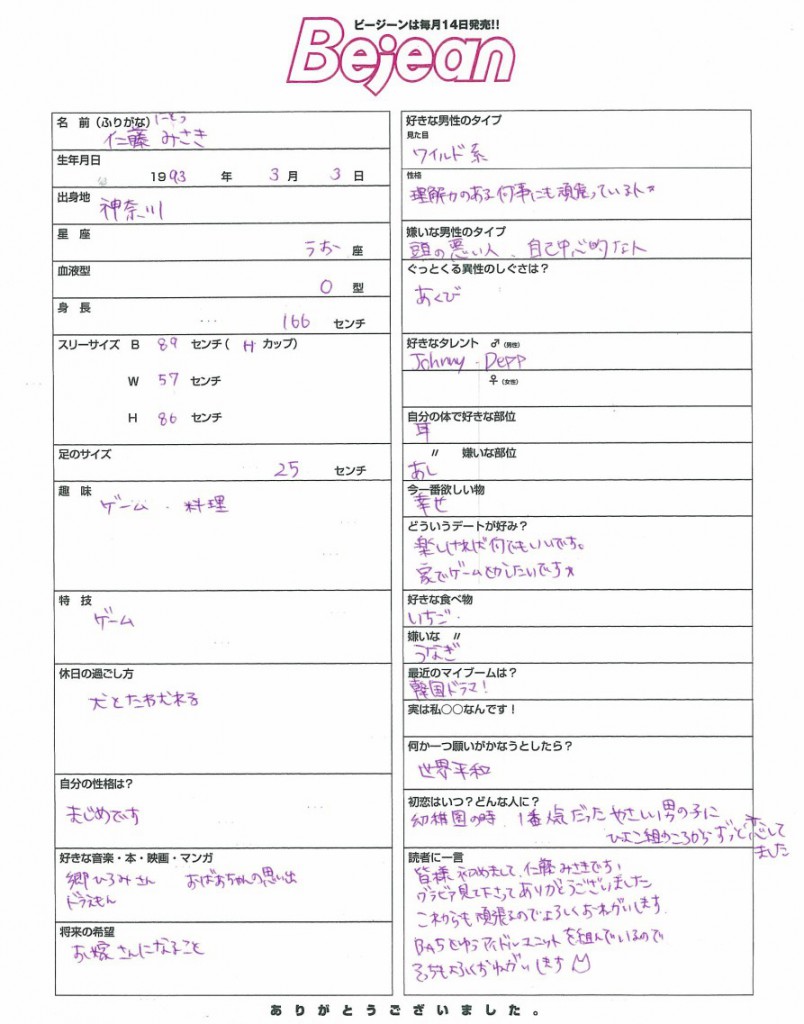 ビージーンは毎月14日発売!!
Bejean
名 前 (ふりがな) にとう
仁藤 みさき
生年月日
1993 年 3 月 3 日
出身地
神奈川
星 座
うお 座
血液型
O 型
身 長
166 センチ
スリーサイズ B 89 センチ( H カップ)
W 57 センチ
H 86 センチ
足のサイズ
25 センチ
趣 味
ゲーム . 料理
特 技
ゲーム
休日の過ごし方
犬とたわむれる
自分の性格は?
まじめです
好きな音楽・本・映画・マンガ
郷ひろみさん おばあちゃんの思い出
ドラえもん
将来の希望
お嫁さんになること
好きな男性のタイプ
見た目
ワイルド系
性格
理解力のある何事にも頑張っている人☆
嫌いな男性のタイプ
頭の悪い人、自己中心的な人
ぐっとくる異性のしぐさは?
あくび
好きなタレント ♂(男性)
Johnny・Depp
♀(女性)
自分の体で好きな部位
耳
〃 嫌いな部位
あし
今一番欲しい物
幸せ
どういうデートが好み?
楽しければ何でもいいです。
家でゲームとかしたいです☆
好きな食べ物
いちご
嫌いな 〃
うなぎ
最近のマイブームは?
韓国ドラマ!
実は私○○なんです!
何か一つ願いがかなうとしたら?
世界平和
初恋はいつ?どんな人に?
幼稚園の時、1番人気だったやさしい男の子に
ひよこ組のころからずっと恋して
ました
読者に一言
皆様初めまして、仁藤みさきです!
グラビア見て下さってありがとうございました
これからも頑張るのでよろしくおねがいします
BA5とゆうアイドルユニットを組んでいるので
そっちもよろしくおねがいします
ありがとうございました。